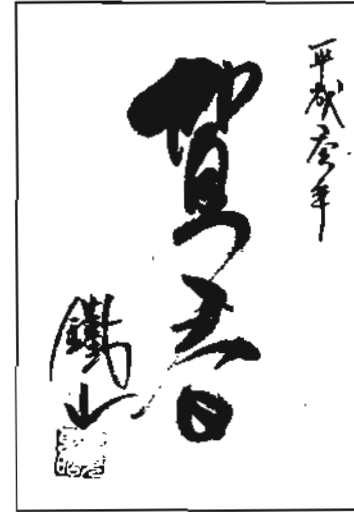 平成壱年
賀春
鐵山